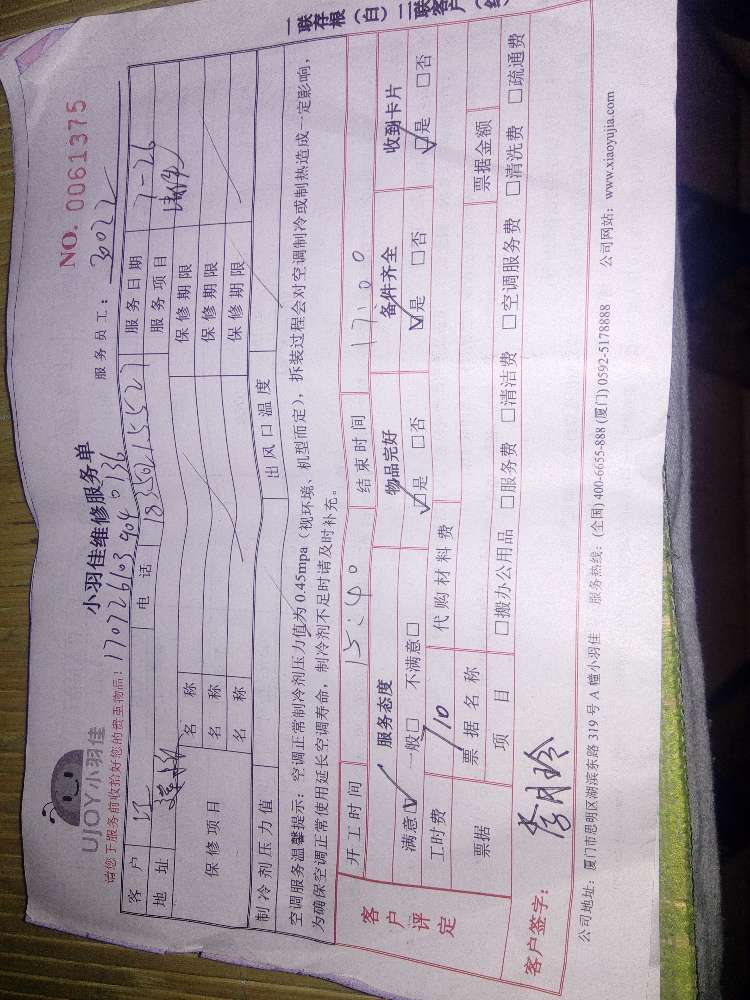 一联存根(白)二联客户(红
NO. 0061375
UJOY小羽佳
小羽佳维修服务单
请您于服务前收拾好您的贵重物品! 服务员工:
客户 江 电话 服务日期 7-26
地址 服务项目
保修项目 名称 保修期限
名称 保修期限
名称 保修期限
制冷剂压力值 出风口温度
空调服务温馨提示: 空调正常制冷剂压力值为 0.45mpa(视环境、机型而定), 拆装过程会对空调制冷或制热造成一定影响,
为确保空调正常使用延长空调寿命, 制冷剂不足时请及时补充。
客户评定
开工时间 15:40 结束时间 17:00
服务态度 物品完好 备件齐全 收到卡片
满意☑ 一般□ 不满意□ ☑是 □否 ☑是 □否 ☑是 □否
工时费 710 代购材料费
票据 票据名称 票据金额
项目 □搬办公用品 □服务费 □清洁费 □空调服务费 □清洗费 □疏通费
客户签字: 李月玲
公司地址: 厦门市思明区湖滨东路 319 号 A 幢小羽佳 服务热线: (全国) 400-6655-888 (厦门) 0592-5178888 公司网站: www.xiaoyujia.com